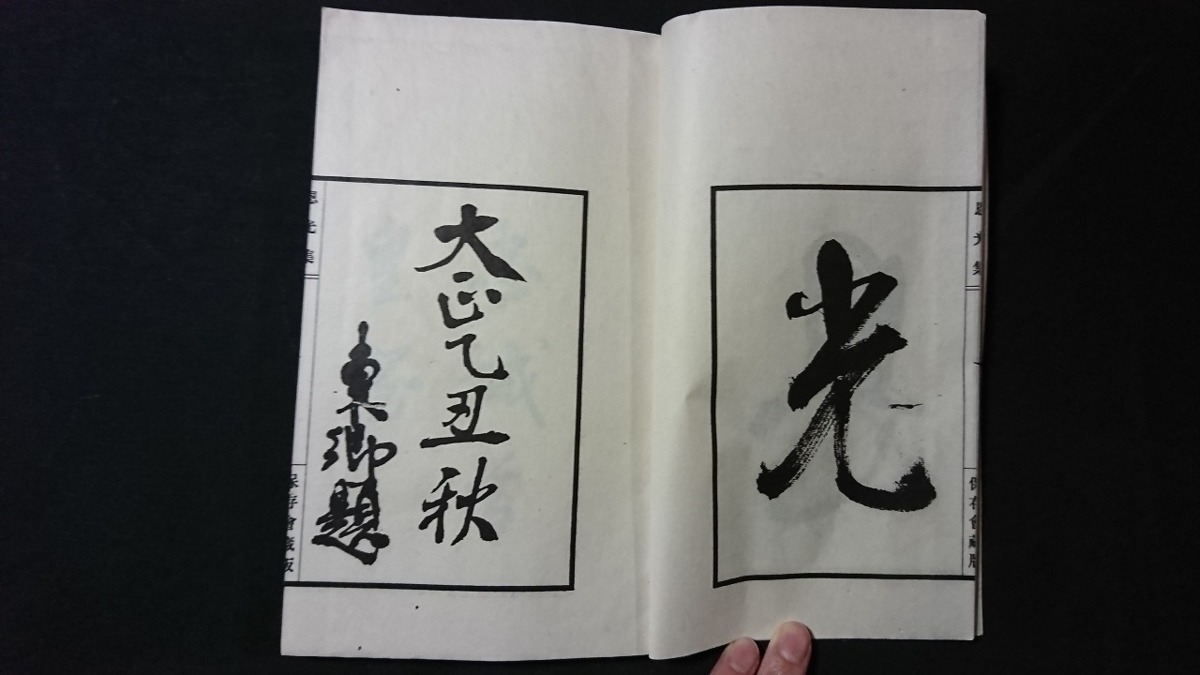 光
大正乙丑秋
東郷題
光集
保存會藏版
光集
保存會藏版